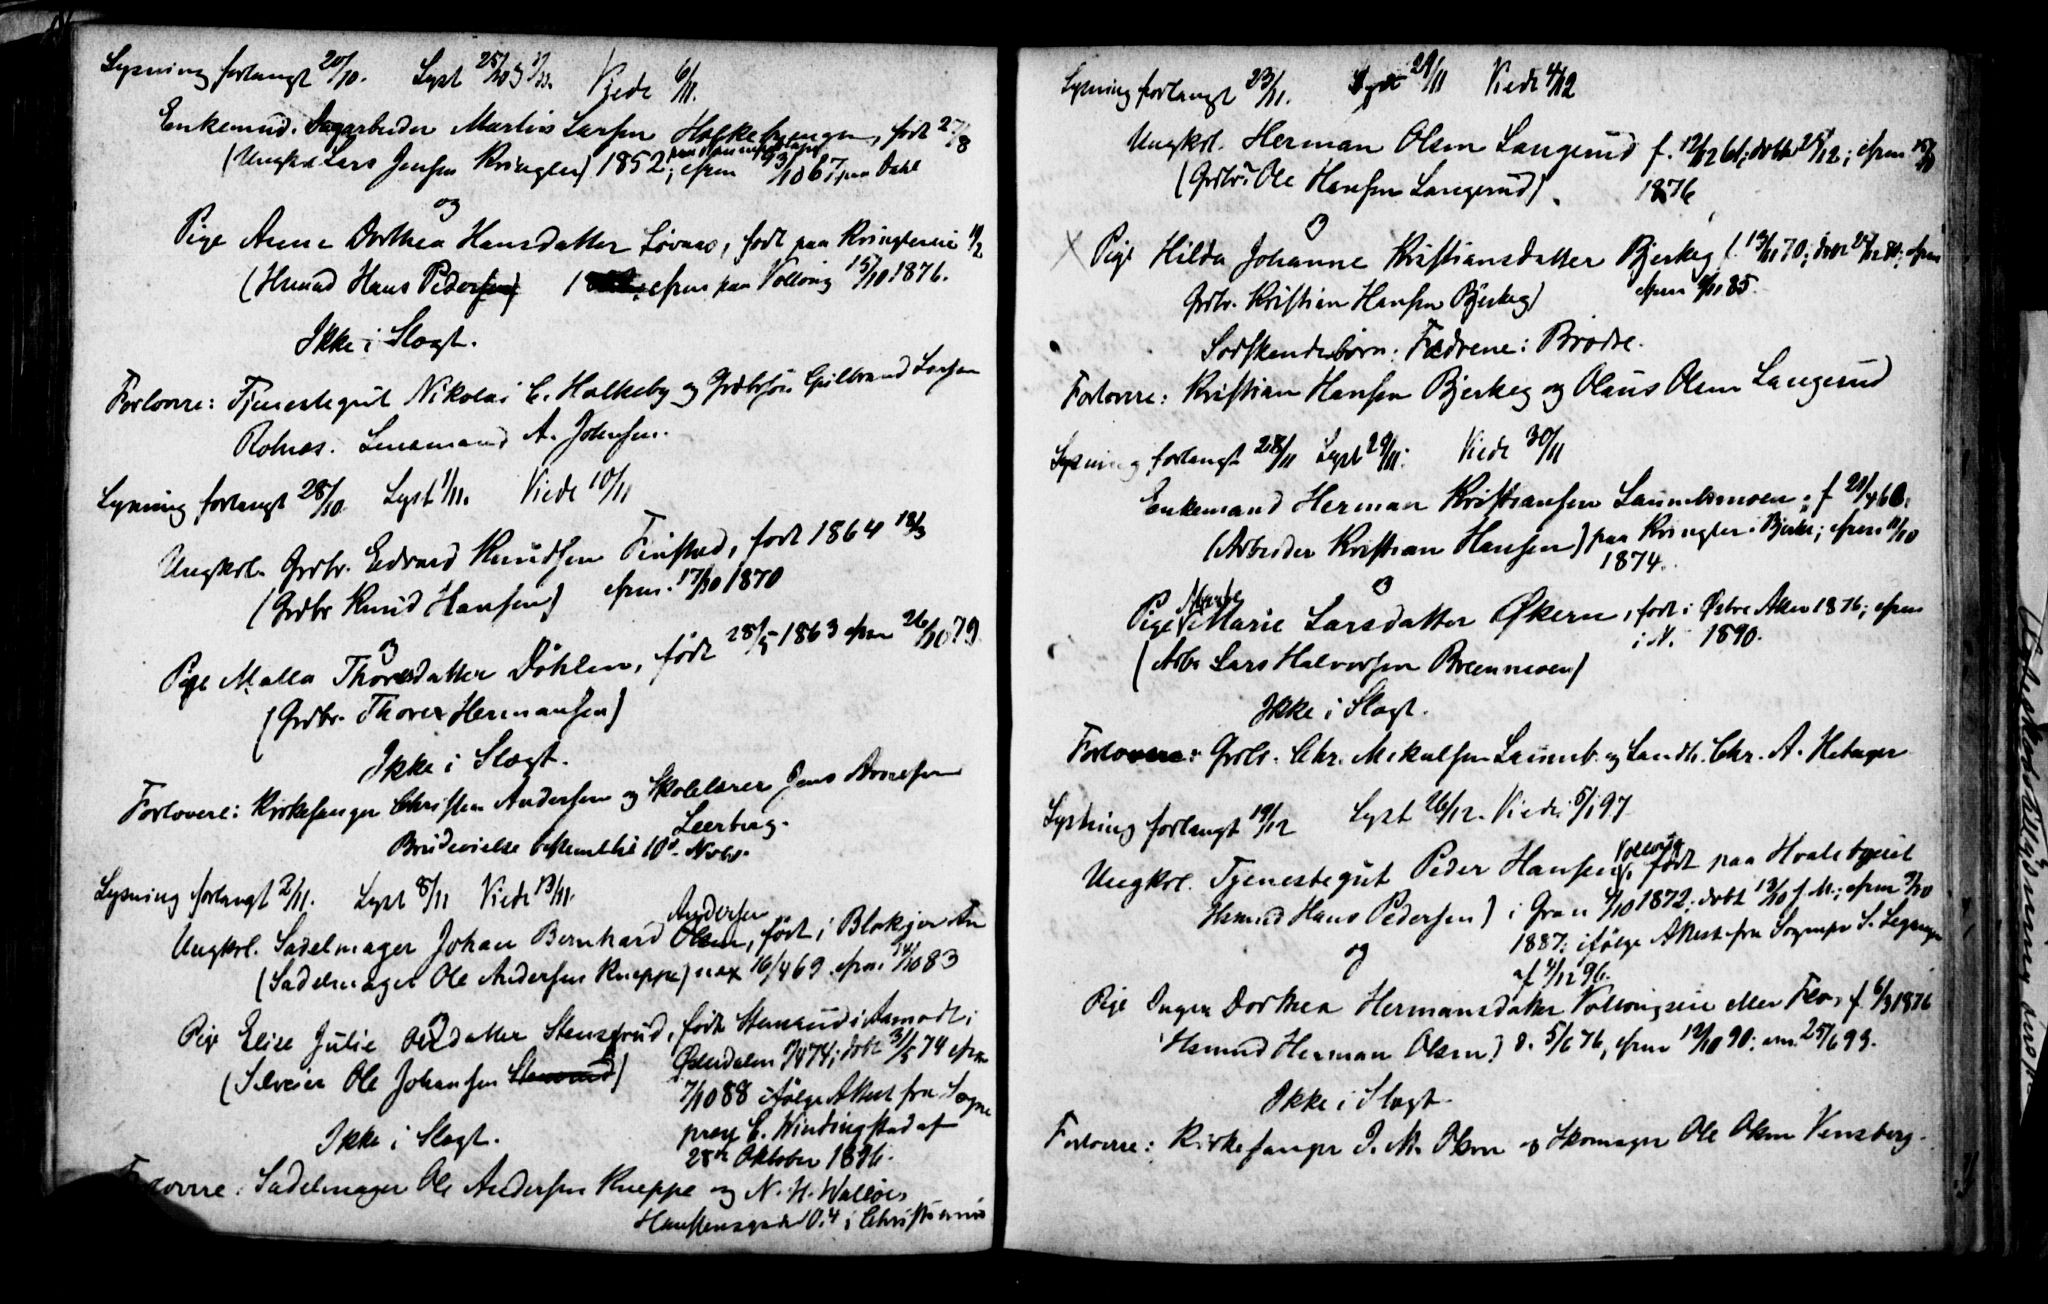 Lysning forlangt 20/10. Lyst 25/10 Viede 6/11.
Enkemnd. Sagarbeider Martin Larsen Holkebyengen, født 27/8
(Ungkrl Lars Jensen Kringler) 1852, cfrm 10 67 paa Dahl
og
Pige Anne Dorthea Hansdatter Løvaas, født paa Kringlereie
(Hsmnd Hans Pedersen) cfrm paa Vollaug 15/10 1876.
Ikke i Slægt.
Forlovere: Tjenestegut Nikolai C. Holkeby og Grdbrsøn Gulbrand Larsen
Rolnes. Lensmand A. Johnsen.
Lysning forlangt 28/10 Lyst 1/11. Viede 10/11
Ungkrl. Grdbr. Edvard Knudsen Finstad, født 1864 18/3
(Grdbr Knud Hansen) cfrm. 17/10 1870
og
Pige Malla Thoresdatter Døhlen, født 28/5 1863 cfrm 26/10 79
(Grdbr. Thorer Hermansen)
Ikke i Slægt.
Forlovere: Kirkesanger Christen Andersen og Skolelærer Jens Arnesen
Leerberg.
Brudevielse bestemt til 10de Novbr.
Lysning forlangt 2/11. Lyst 8/11 Viede 13/11.
Andersen
Ungkrl. Sadelmager Johan Bernhard Olsen, født i Blakjer An
(Sadelmager Ole Andersen Kneppe) nex 16/4 69. cfrm. 14/10 83
og
Pige Elise Julie Olsdatter Stensrud, født Stensrud i Aamodt i
(Selveier Ole Johansen Stensrud) Østerdalen 74; døbt 31/5 74 cfrm
7/10 88 ifølge Attest fra Sogne
Ikke i Slægt. prest C. Windingstad af
28de Oktober 1896.
Forlovere: Sadelmager Ole Andersen Kneppe og N. H. Walløes
Haustensgade No. 4 i Christiania
Lysning forlangt 23/11. Lyst 29/11 Viede 4/12
Ungkrl. Herman Olsen Langerud f. 12/12 61; døbt 25/12; cfrm 15/10
(Grdbr. Ole Hansen Langerud) 1876
og
X Pige Hilda Johanne Kristiansdatter Bjerkeg f. 13/11 70; døbt; cfrm
Grdbr. Kristian Hansen Bjerkeg) cfrm 11 85.
Sødskendebørn. Fædrene: Brødre.
Forlovere: Kristian Hansen Bjerkeg og Olaus Olsen Langerud
Lysning forlangt 28/11 Lyst 29/11. Viede 30/11
Enkemand Herman Kristiansen Laumbsmoen, f 21/4 60.
(Arbeider Kristian Hansen) paa Kringler i Bjerke; cfrm 11/10
1874.
og
Pige Marie Larsdatter Økern, født i Østre Aker 1876; cfrm
i N. 1890.
(Arbr Lars Halvorsen Brennmoen)
Ikke i Slægt.
Forlovere: Grdbr. Chr. Mikalsen Laumb og Landh. Chr. A. Hebager
Lysning forlangt 19/12 Lyst 26/12. Viede 5/1 97.
Vollaug
Ungkrl. Tjenestegut Peder Hansen, født paa Hvalebyeiet
Hsmnd Hans Pedersen) i Gran 4/10 1872; døbt 13/10 s. A.; cfrm 9/10
1887; ifølge Attest fra Sognepr S.
og
af 4/12 96.
Pige Inger Dorthea Hermansdatter Vollaugseie eller Flor, f. 6/3 1876
Hsmnd Herman Olsen) d. 5/6 76, cfrm 12/10 90; 25/6 93.
Ikke i Slægt.
Forlovere: Kirkesanger J. M. Olsen og Skomager Ole Olsen Vensberg.